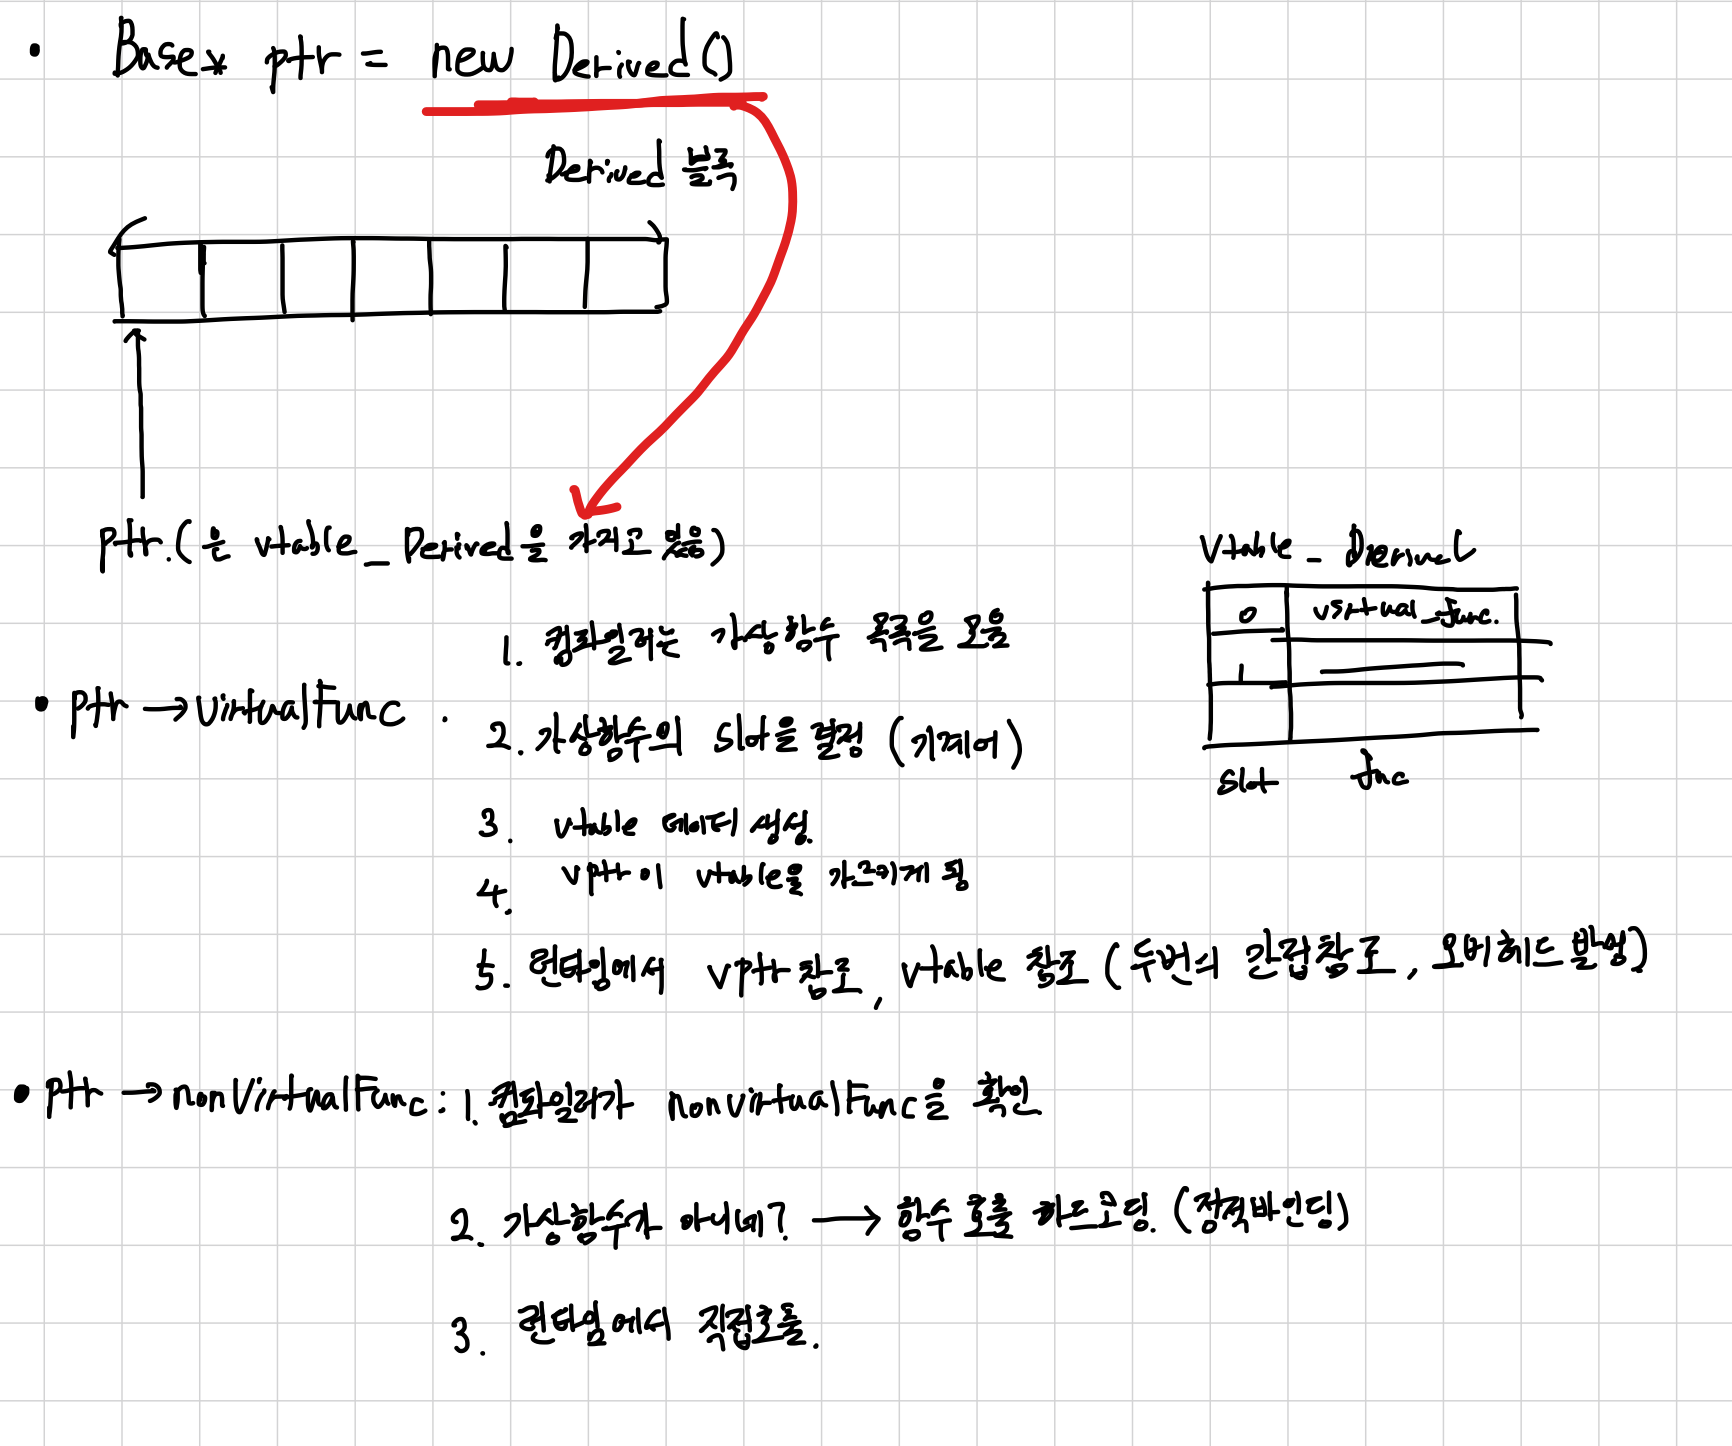 • Base* ptr = new Derived()
Derived 블록
ptr.(은 vtable_Derived을 가지고 있음)
Vtable_Derived
0 virtual_func.
1
slot func
1. 컴파일러는 가상함수 목록을 모음
• ptr → virtualFunc .
2. 가상함수의 slot을 결정 (기계어)
3. vtable 데이터 생성.
4. vptr이 vtable을 가르키게 됨
5. 런타임에서 vptr참조, vtable 참조 (두번의 간접참조, 오버헤드 발생)
• ptr → nonVirtualFunc : 1. 컴파일러가 nonvirtualFunc을 확인
2. 가상함수가 아니네? → 함수 호출 하드코딩. (정적바인딩)
3. 런타임에서 직접호출.